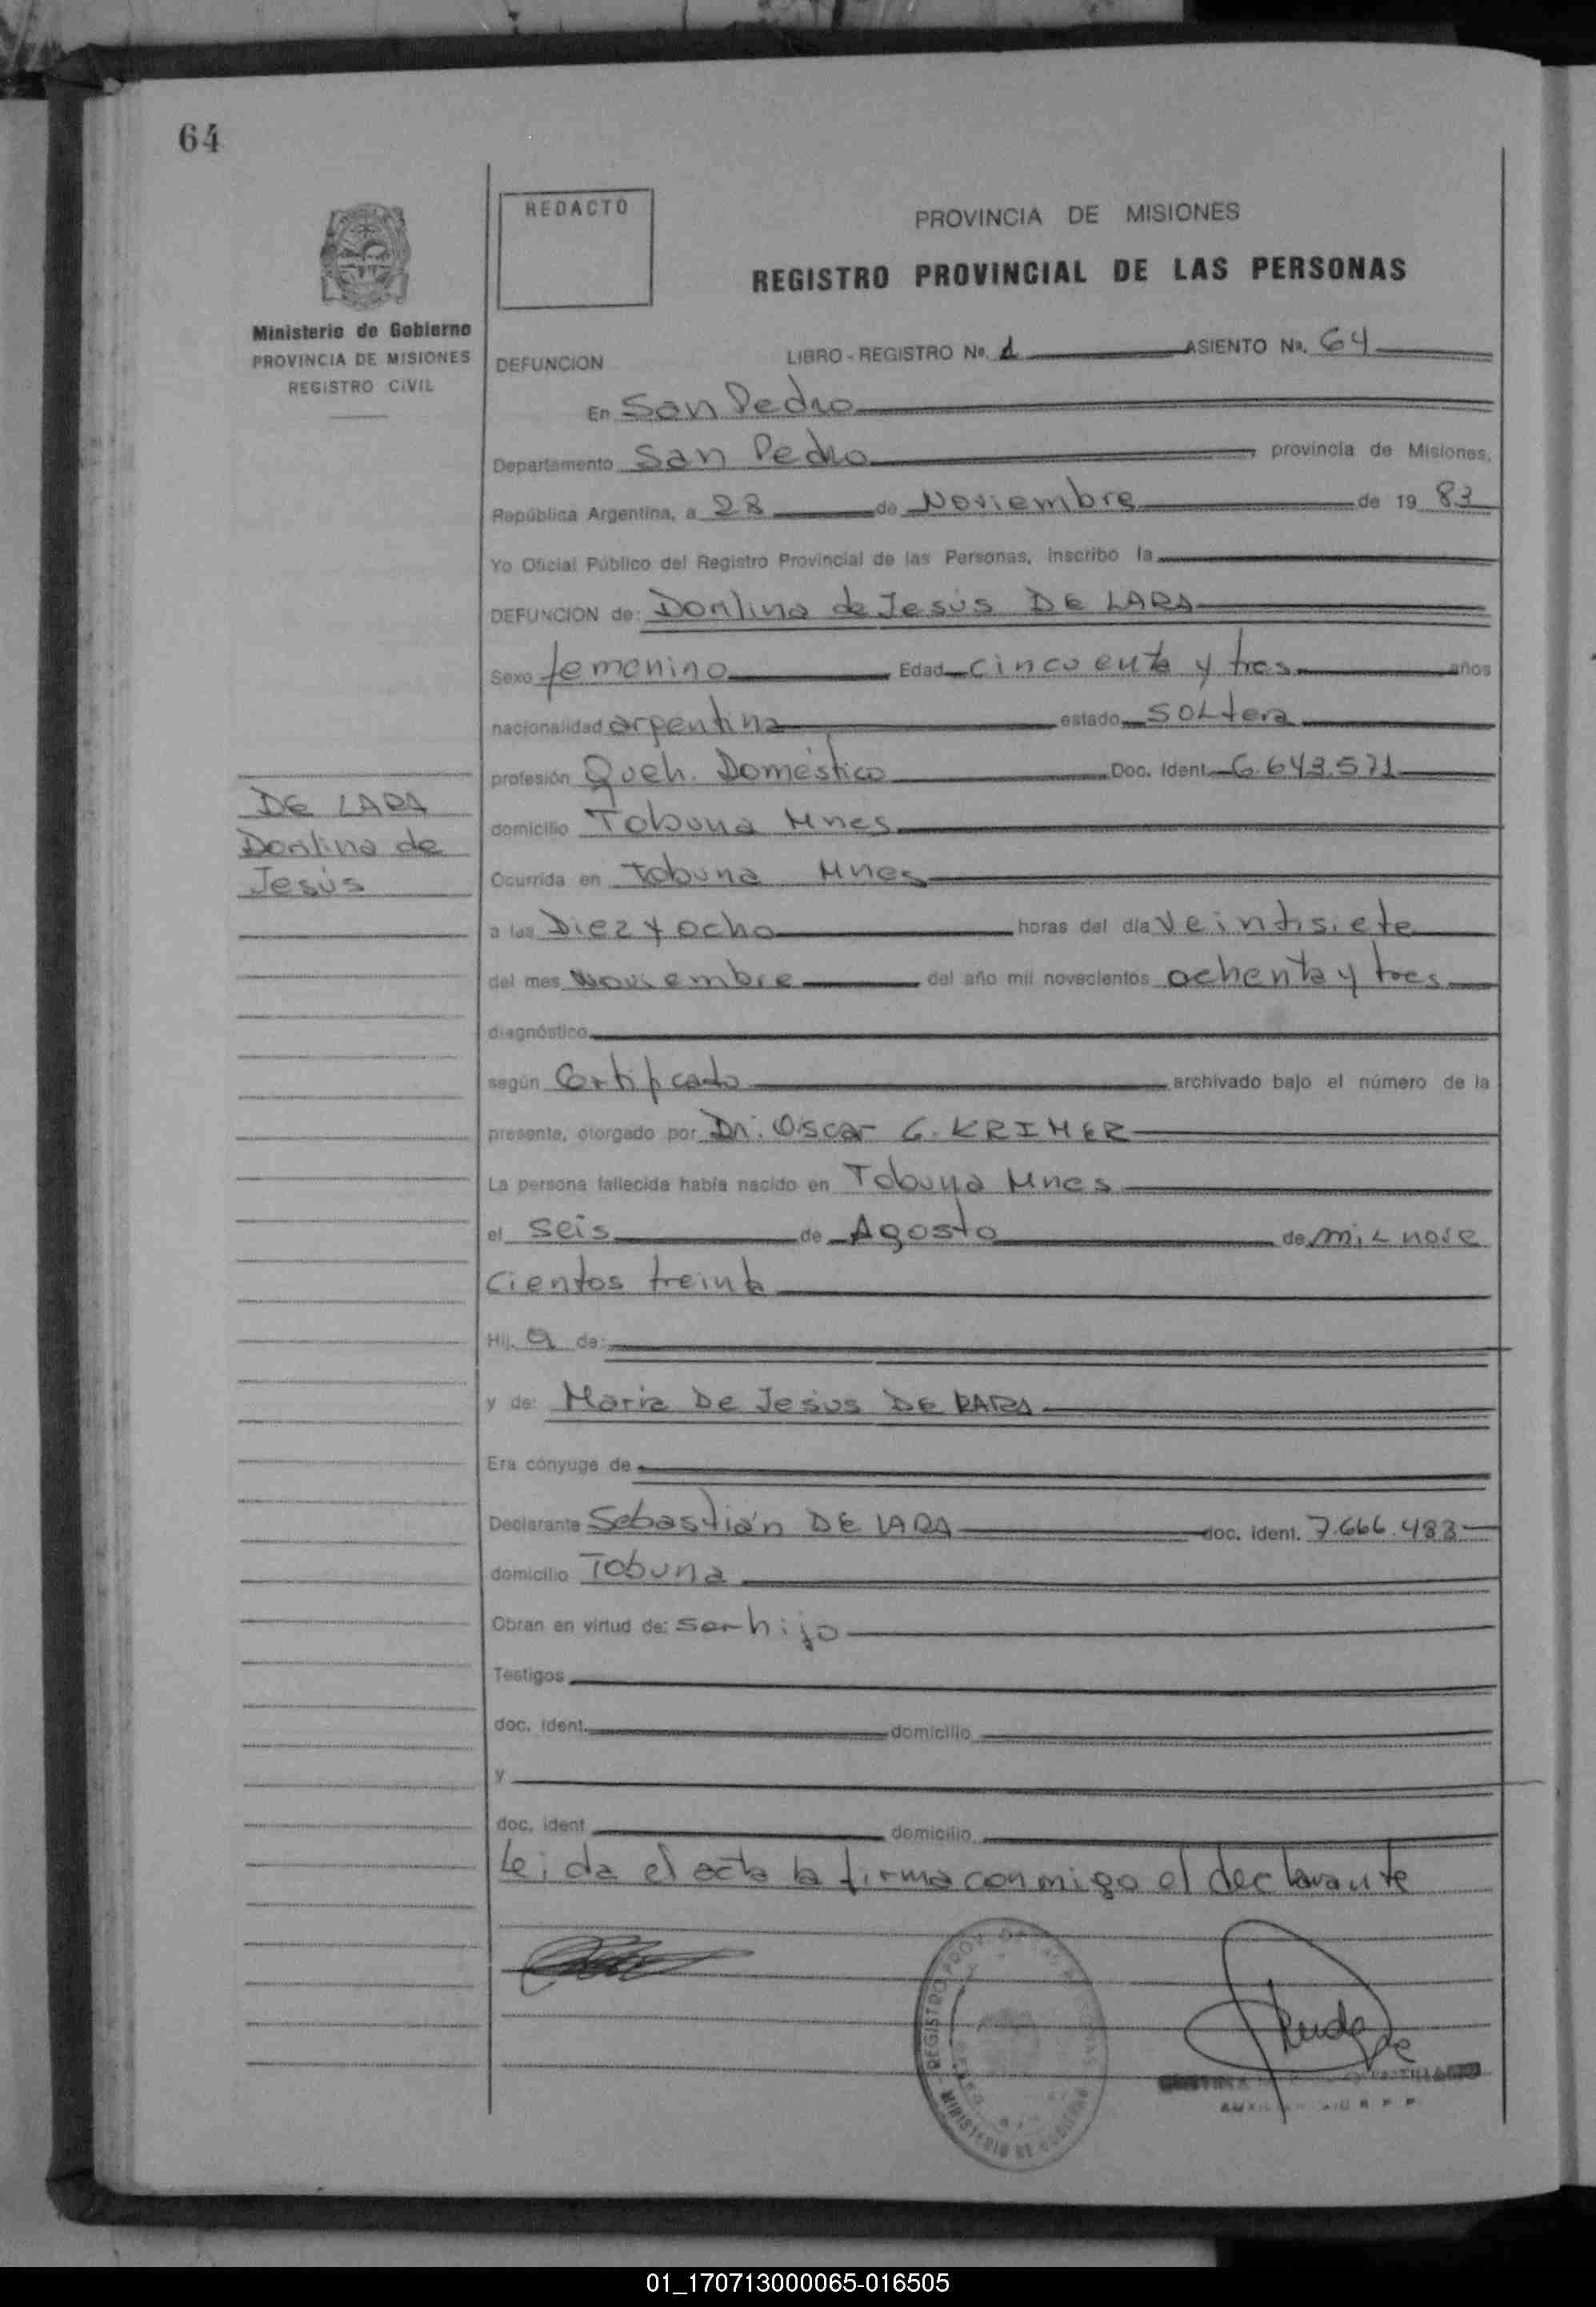 64
REDACTO
PROVINCIA DE MISIONES
REGISTRO PROVINCIAL DE LAS PERSONAS
Ministerio de Gobierno
PROVINCIA DE MISIONES
REGISTRO CIVIL
DEFUNCION LIBRO - REGISTRO No. 1 ASIENTO No. 64
En San Pedro
Departamento San Pedro provincia de Misiones,
República Argentina, a 28 de Noviembre de 19 83
Yo Oficial Público del Registro Provincial de las Personas, inscribo la
DEFUNCION de: Dorlina de Jesús DE LARA
Sexo femenino Edad cincuenta y tres años
nacionalidad argentina estado SOLtera
profesión Queh. Doméstico Doc. Ident. 6.643.571
domicilio Tobuna Mnes
DE LARA
Dorlina de
Jesús
Ocurrida en Tobuna Mnes
a las Diez y ocho horas del día veintisiete
del mes Noviembre del año mil novecientos ochenta y tres
diagnóstico
según Certificado archivado bajo el número de la
presente, otorgado por Dr. Oscar G. KRIMER
La persona fallecida había nacido en Tobuna Mnes
el seis de Agosto de miL nove
cientos treinta
Hij. a de:
y de: Maria De Jesus DE LARA
Era cónyuge de
Declarante Sebastián DE LARA doc. ident. 7.666.483
domicilio Tobuna
Obran en virtud de: ser hijo
Testigos
doc. ident. domicilio
y
doc. ident domicilio
Leida el acta la firma conmigo el declarante
REGISTRO PROV. DE LAS
MINISTERIO DE GOBIERNO
01_170713000065-016505